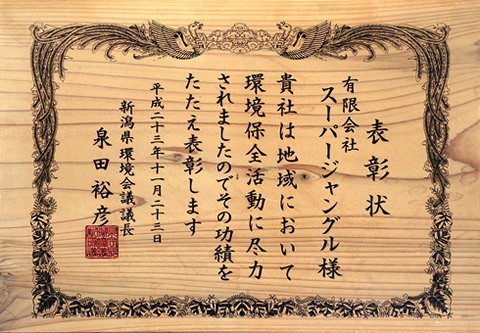 表彰状
有限会社
スーパージャングル様
貴社は地域において
環境保全活動に尽力
されましたのでその功績を
たたえ表彰します
平成二十三年十一月二十三日
新潟県環境会議議長
泉田裕彦